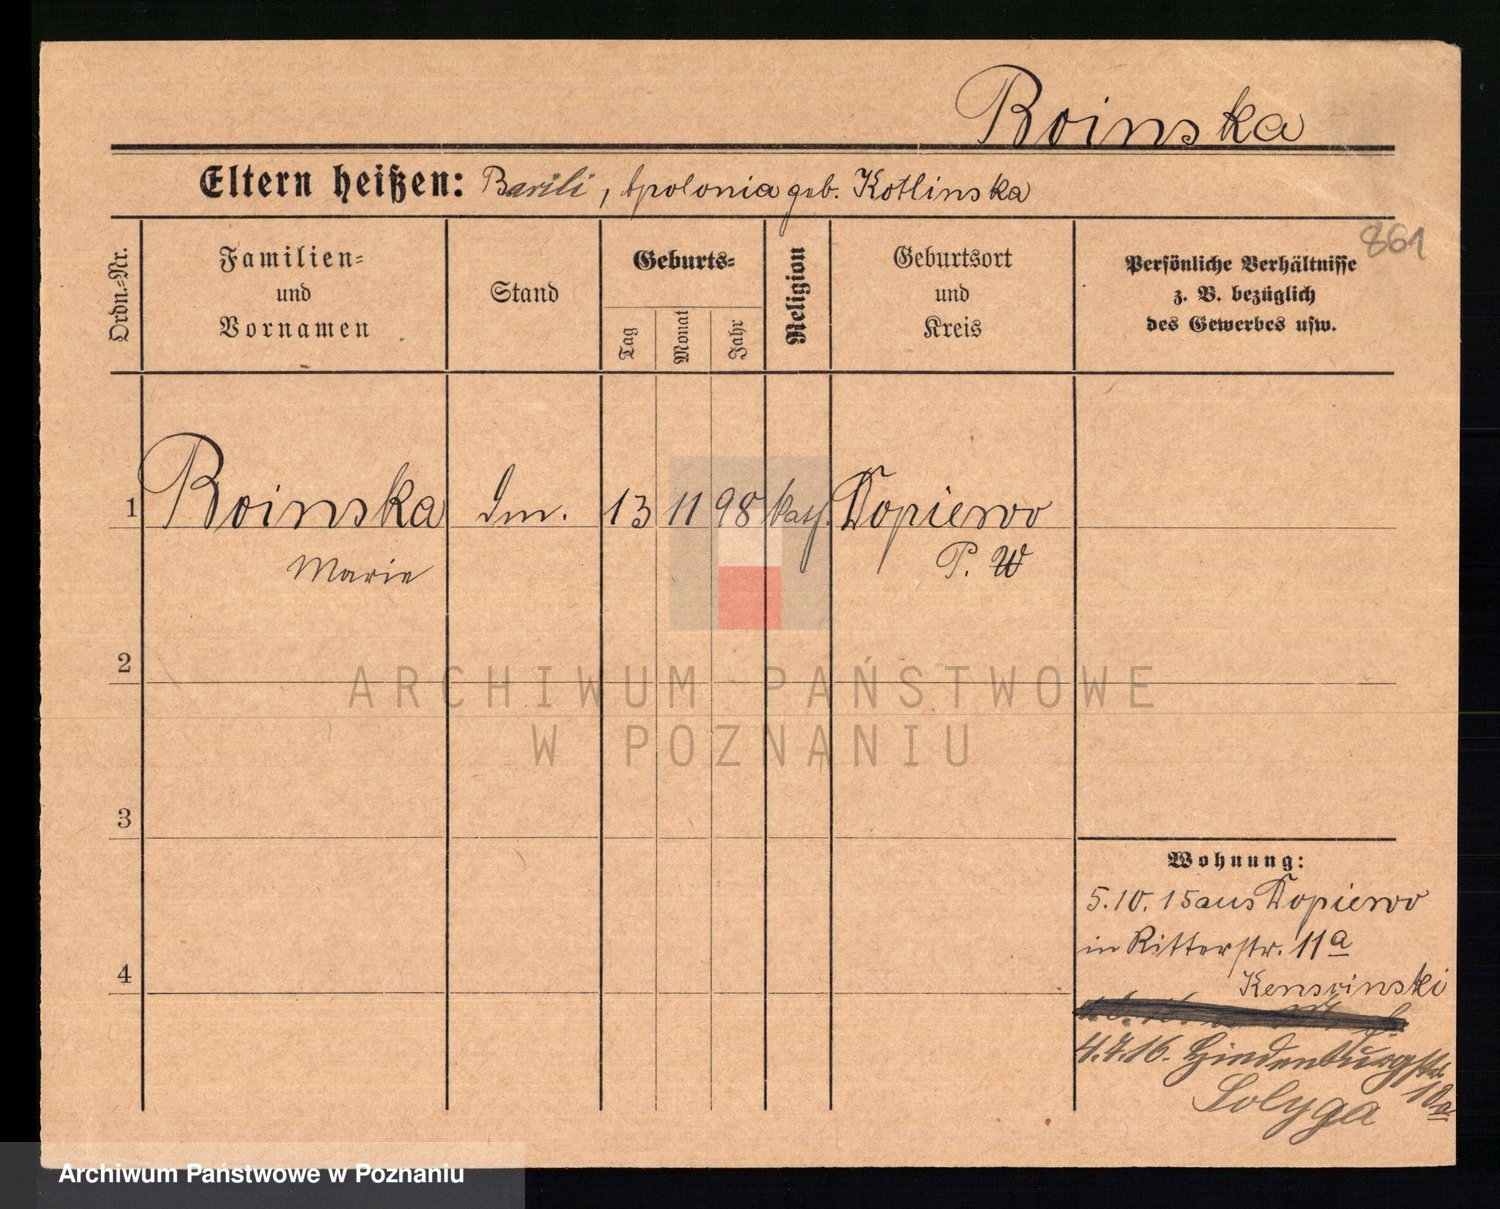 Boinska
Eltern heißen: Basili, Apolonia geb. Kotlinska
861
Ordn.-Nr.
Familien-
und
Vornamen
Stand
Geburts-
Tag
Monat
Jahr
Religion
Geburtsort
und
Kreis
Persönliche Verhältnisse
z. B. bezüglich
des Gewerbes usw.
1 Boinska 13 11 98 kath. Dopiewo
Marie P. W
2
3
4
Wohnung:
5.10.15 aus Dopiewo
in Ritterstr. 11a
4.4.16. Hindenburgstr.
10a
Solyga
ARCHIWUM PAŃSTWOWE
W POZNANIU
Archiwum Państwowe w Poznaniu